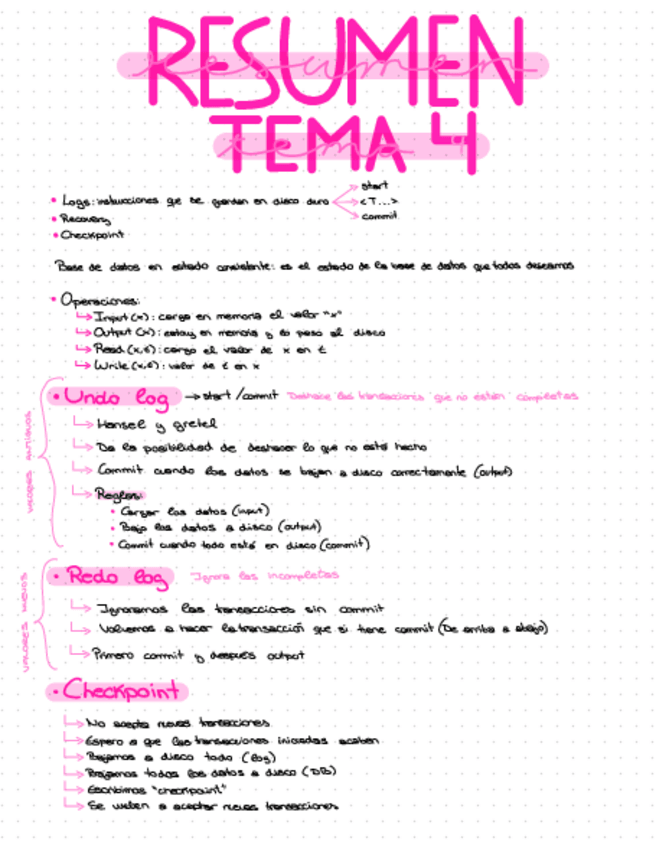 RESUMEN
resumen
TEMA 4
tema
• Logs: instrucciones que se guardan en disco duro
start
<T...>
commit
• Recovery
• Checkpoint
Base de datos en estado consistente: es el estado de la base de datos que todos deseamos
• Operaciones:
Input (x): cargo en memoria el valor "x"
Output (x): estoy en memoria y lo paso al disco
Read (x,t): cargo el valor de x en t
Write (x,t): valor de t en x
VALORES ANTIGUOS
• Undo log → start / commit Deshace las transacciones que no están completas
Hansel y gretel
Da la posibilidad de deshacer lo que no está hecho
Commit cuando los datos se bajan a disco correctamente (output)
Reglas:
• Cargar los datos (input)
• Bajo los datos a disco (output)
• Commit cuando todo está en disco (commit)
VALORES NUEVOS
• Redo log Ignora las incompletas
Ignoramos las transacciones sin commit
Volvemos a hacer la transacción que si tiene commit (De arriba a abajo)
Primero commit y después output
• Checkpoint
No acepta nuevas transacciones
Espero a que las transacciones iniciadas acaben
Bajamos a disco todo (log)
Bajamos todos los datos a disco (DB)
Escribimos "checkpoint"
Se vuelven a aceptar nuevas transacciones